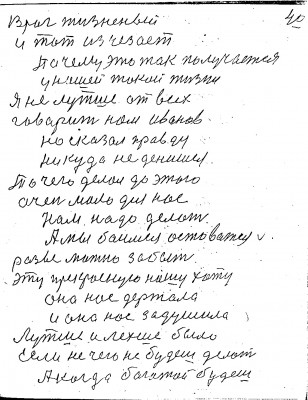 40
Враг жизненый
и тот изчезает
Почему это так получается
у нашей такой жизни
Я не лутше от всех
говарит нам иванов
но сказал правду
никуда не денишся
То чего делал до этого
очен мало для нас
Нам надо делат
А мы боимся оставатся
разве можно забыт
Эту прекрасную нашу хату
она нас держала
и она нас задушила
Лутше и легше было
Если не чего не будеш делат
А когда багатой будеш